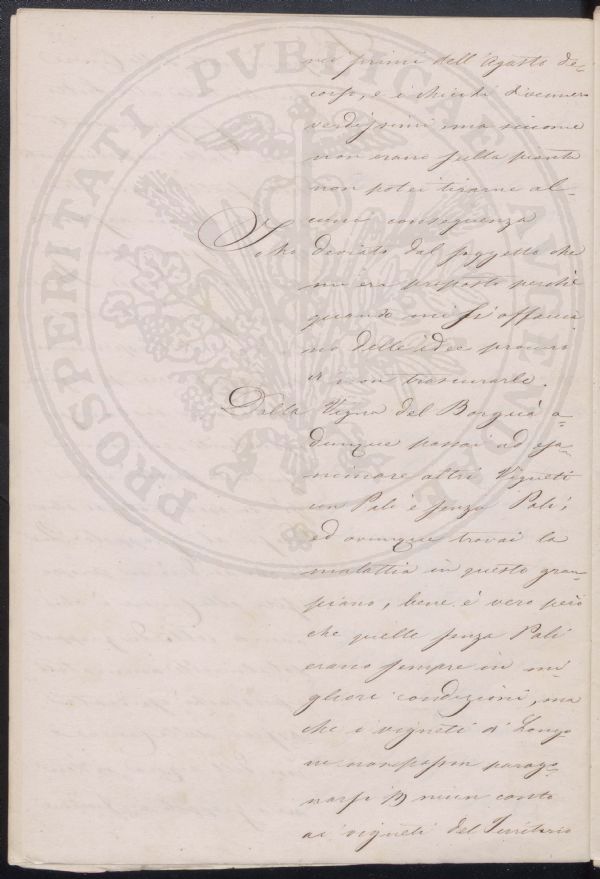 nei primi dell'Agosto de-
corso, e i chicchi d'eranno
verdissimi ma siccome
non erano sulla pianta
non potei tirarne al-
cuna conseguenza
Io ho deviato dal soggetto che
mi era proposto perchè
quando mi si affaccia
no delle idee procuro
di non trascurarle.
Dalla Vigna del Borgià a-
dunque passai ad esa-
minare altri Vigneti
con Pali e senza Pali;
ed ovunque trovai la
malattia in questo gran
piano, bene è vero però
che quelle senza Pali
erano sempre in mi-
gliori condizioni, ma
che i vigneti di Longo
ne non possin parago-
narsi p niun conto
ai vigneti del Territorio
PROSPERITATI PVBLICAE AVGENDAE